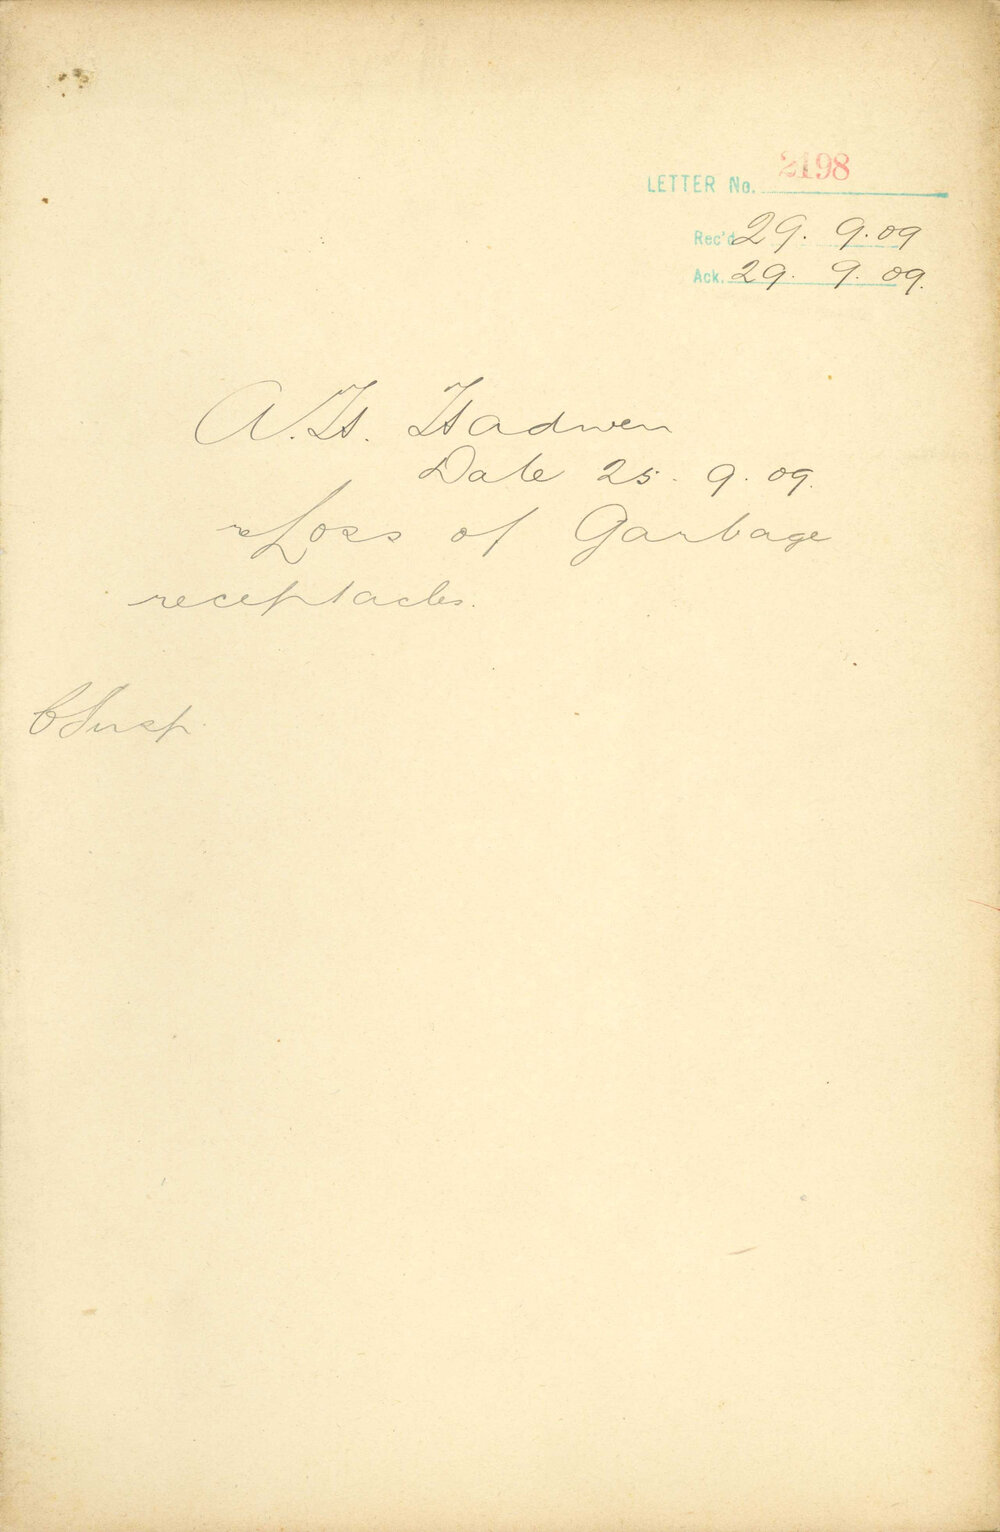 LETTER No. 2198
Rec'd 29. 9. 09
Ack. 29. 9. 09.
A. H. Hadwen
Date 25. 9. 09.
re Loss of Garbage
receptacles.
C Insp.